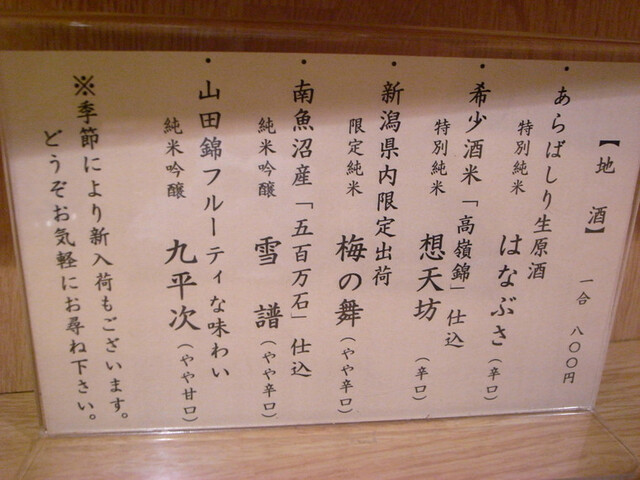 【地酒】
一合 八〇〇円
・あらばしり生原酒
特別純米 はなぶさ(辛口)
・希少酒米「高嶺錦」仕込
特別純米 想天坊(辛口)
・新潟県内限定出荷
限定純米 梅の舞(やや辛口)
・南魚沼産「五百万石」仕込
純米吟醸 雪譜(やや辛口)
・山田錦フルーティな味わい
純米吟醸 九平次(やや甘口)
※季節により新入荷もございます。
どうぞお気軽にお尋ね下さい。